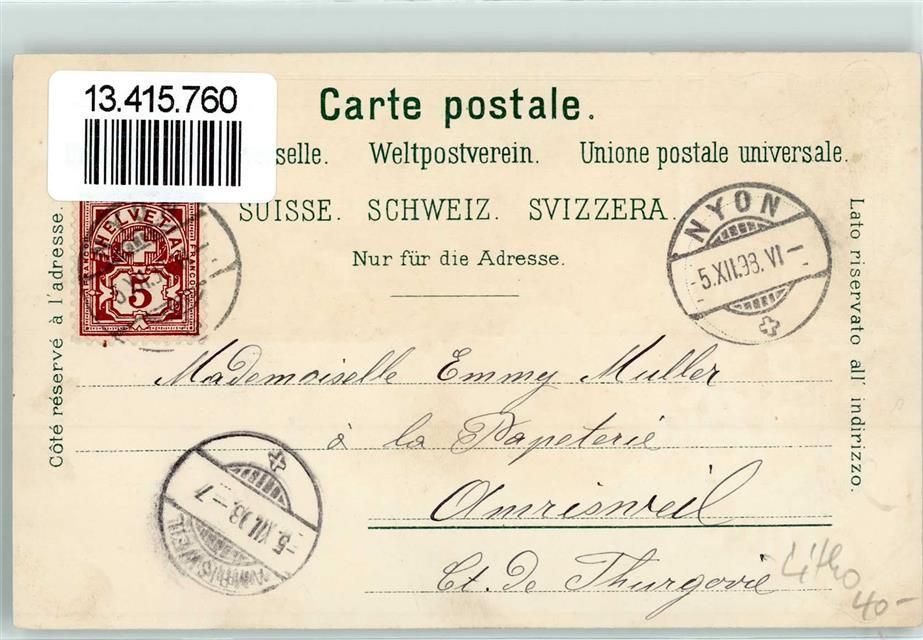 13.415.760
Carte postale.
selle. Weltpostverein. Unione postale universale.
SUISSE. SCHWEIZ. SVIZZERA.
Nur für die Adresse.
Côté réservé à l'adresse.
Lato riservato all' indirizzo.
HELVETIA
FRANCO
5
NYON
5.XII.98.VI-
Mademoiselle Emmy Muller
à la Papeterie
Amrisweil
Ct. de Thurgovie
AMRISWEIL
5.XII.98.-7
Litho
40-